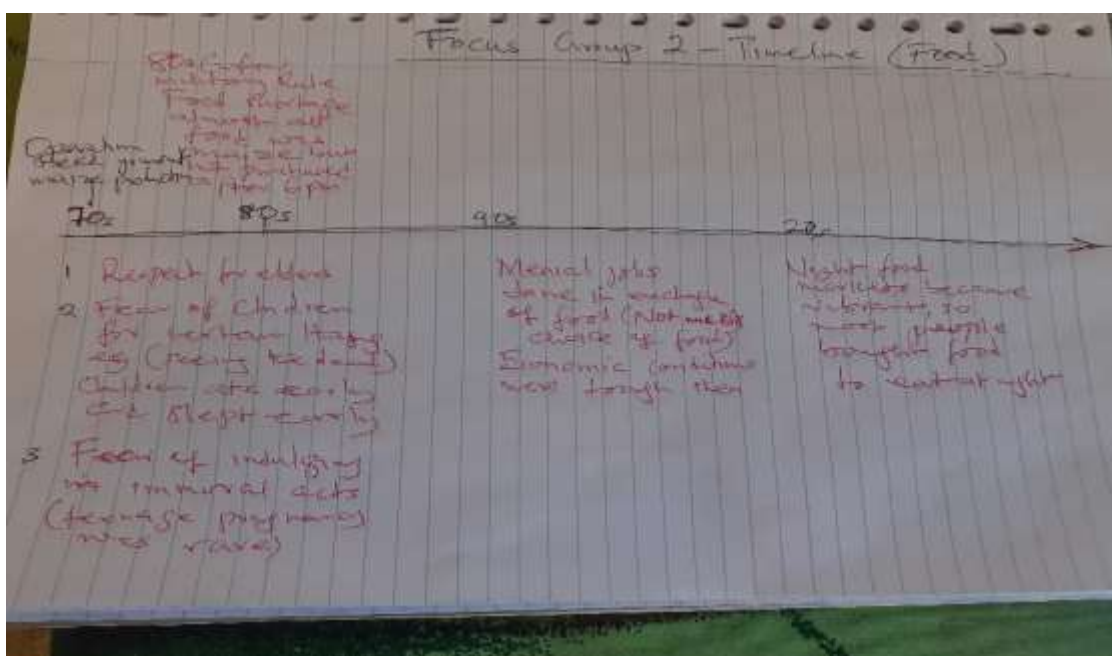 Focus Group 2 - Timeline (Food)
80s
military Rule
Food shortage
food
Operation
70s 80s 90s
1 Respect for elders
2 Fear of Children
for certain things
eg (seeing the dead)
Children ate early
and slept early
3 Fear of indulging
in immoral acts
(teenage pregnancy
was rare)
Menial jobs
done in exchange
of food (Not
choice of food)
Economic conditions
were tough then
Night food
markets became
vibrant, so
most people
bought food
to eat at night